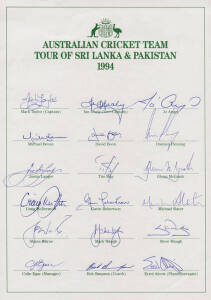 AUSTRALIAN CRICKET TEAM
TOUR OF SRI LANKA & PAKISTAN
1994
Mark Taylor (Captain)
Ian Healy (Vice Captain)
Jo Angel
Michael Bevan
David Boon
Damien Fleming
Justin Langer
Tim May
Glenn McGrath
Craig McDermott
Gavin Robertson
Michael Slater
Shane Warne
Mark Waugh
Steve Waugh
Colin Egar (Manager)
Bob Simpson (Coach)
Errol Alcott (Physiotherapist)